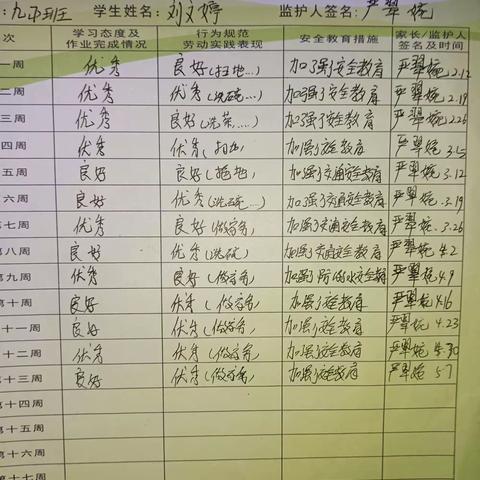 :九(7)班 学生姓名: 刘文婷 监护人签名: 严翠婉
次 学习态度及作业完成情况 行为规范劳动实践表现 安全教育措施 家长/监护人签名及时间
一周 优秀 良好(扫地...) 加强了安全教育 严翠婉 2.12
二周 优秀 优秀(洗碗...) 加强了安全教育 严翠婉 2.19
三周 优秀 良好(洗菜....) 加强了安全教育 严翠婉 2.26
四周 优秀 优秀(扫地) 加强了安全教育 严翠婉 3.5
五周 良好 良好(拖地) 加强了交通安全教育 严翠婉 3.12
六周 良好 优秀(洗碗...) 加强了交通安全教育 严翠婉 3.19
第七周 优秀 良好(做家务) 加强了交通安全教育 严翠婉 3.26
第八周 良好 优秀(洗碗) 加强了交通安全教育 严翠婉 4.2
第九周 优秀 良好(做家务) 加强了防溺水安全教育 严翠婉 4.9
第十周 良好 优秀(做家务) 加强了安全教育 严翠婉 4.16
十一周 良好 优秀(做家务) 加强了安全教育 严翠婉 4.23
十二周 优秀 优秀(做家务) 加强了安全教育 严翠婉 4.30
第十三周 良好 优秀(做家务) 加强了安全教育 严翠婉 5.7
第十四周
第十五周
第十六周
第十七周